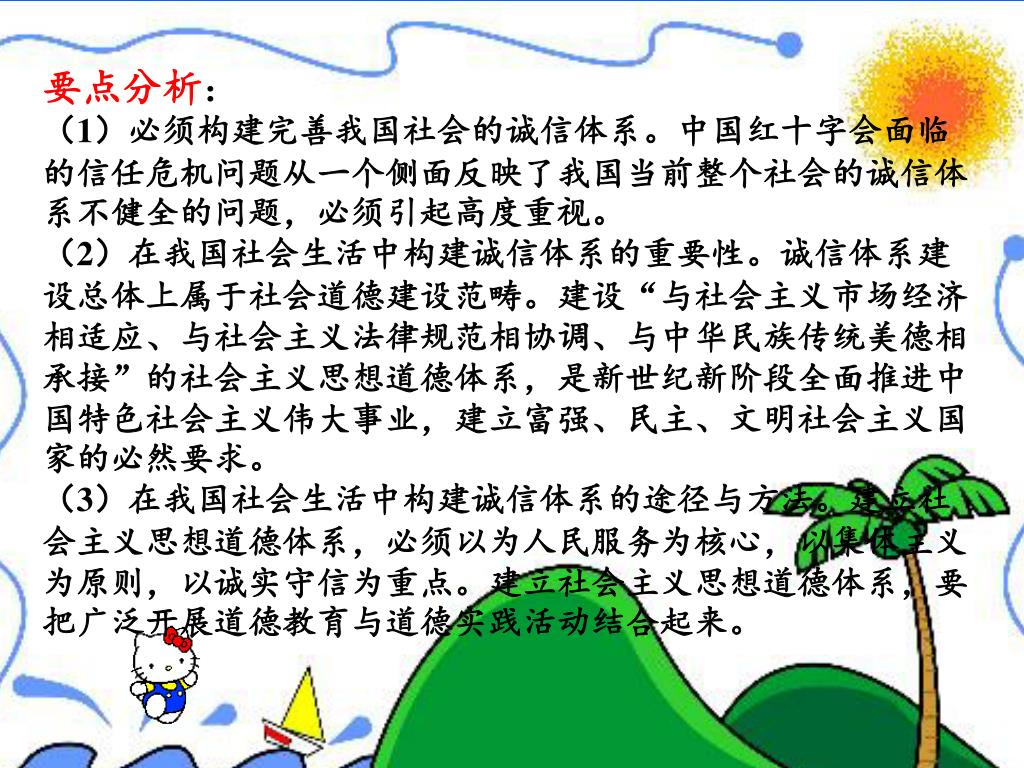 要点分析：
（1）必须构建完善我国社会的诚信体系。中国红十字会面临
的信任危机问题从一个侧面反映了我国当前整个社会的诚信体
系不健全的问题，必须引起高度重视。
（2）在我国社会生活中构建诚信体系的重要性。诚信体系建
设总体上属于社会道德建设范畴。建设“与社会主义市场经济
相适应、与社会主义法律规范相协调、与中华民族传统美德相
承接”的社会主义思想道德体系，是新世纪新阶段全面推进中
国特色社会主义伟大事业，建立富强、民主、文明社会主义国
家的必然要求。
（3）在我国社会生活中构建诚信体系的途径与方法。建立社
会主义思想道德体系，必须以为人民服务为核心，以集体主义
为原则，以诚实守信为重点。建立社会主义思想道德体系，要
把广泛开展道德教育与道德实践活动结合起来。